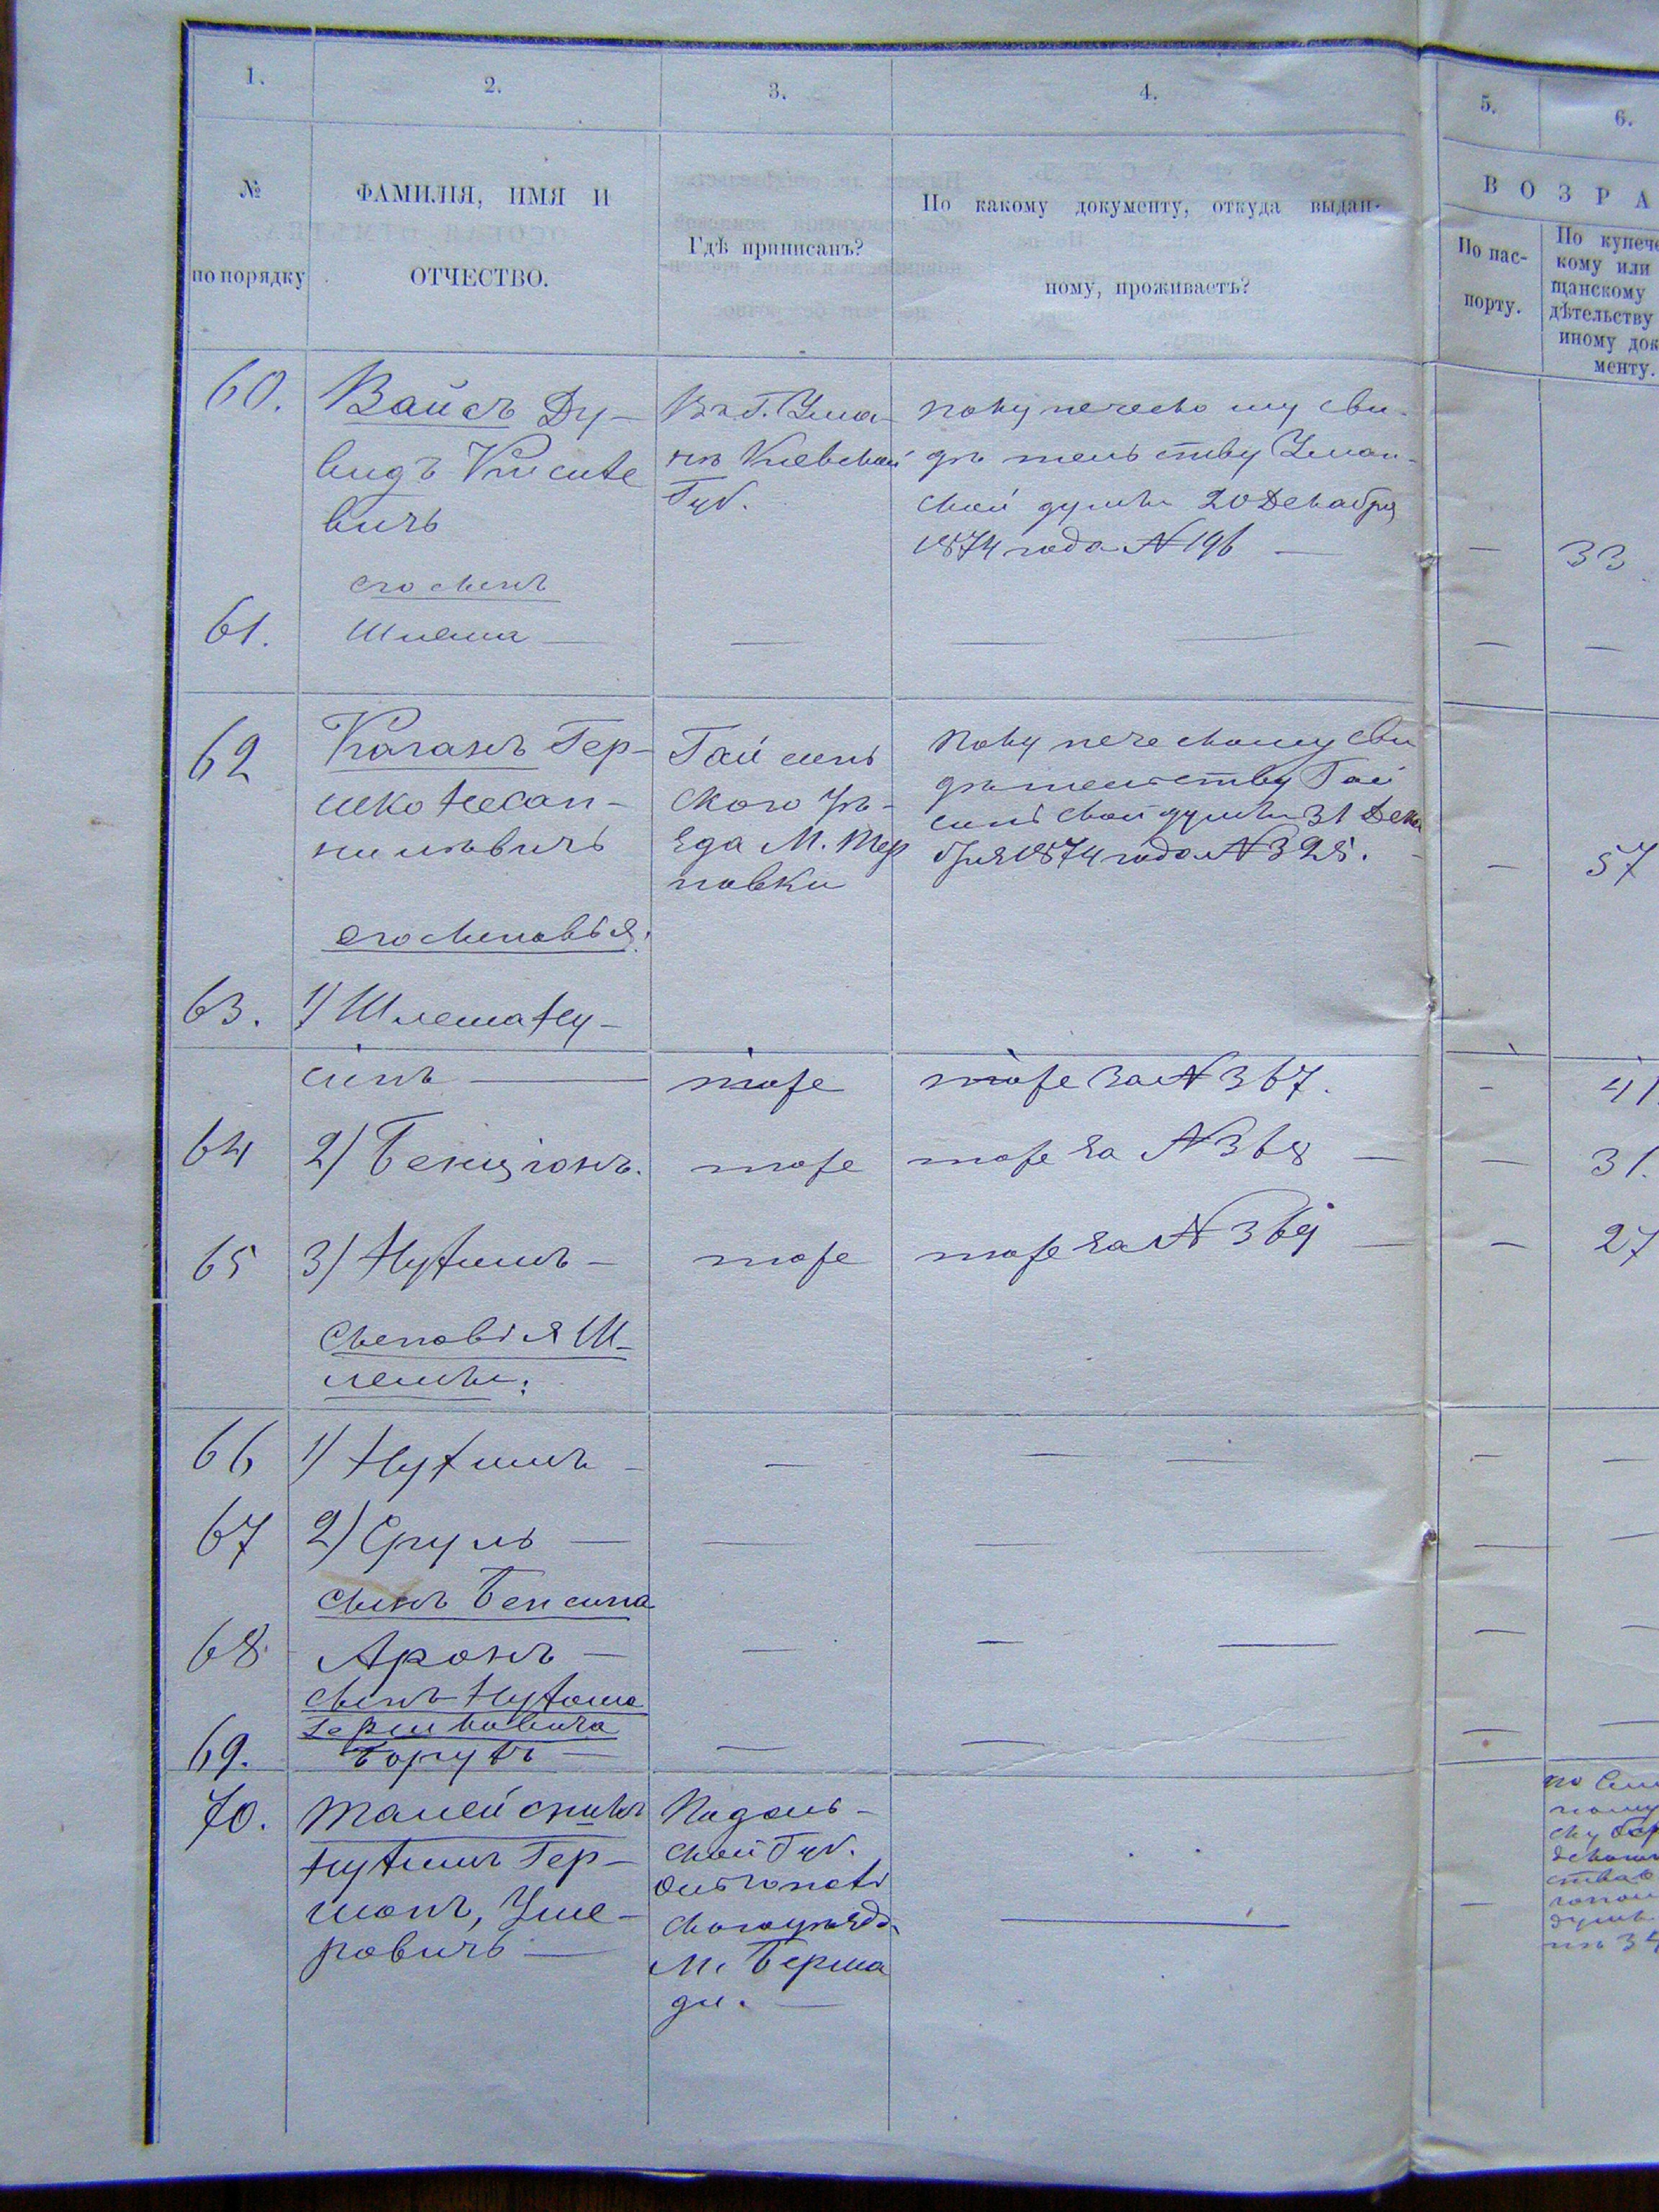 1.
2.
3.
4.
5.
6.
№
по порядку
ФАМИЛІЯ, ИМЯ И
ОТЧЕСТВО.
Гдѣ приписанъ?
По какому документу, откуда выдан-
ному, проживаетъ?
ВОЗРА
По пас-
порту.
По купече
кому или
щанскому
дѣтельству
иному док
менту.
60.
Вайсъ Ду-
видъ
вичъ
Въ г. Ума-
нѣ Кіевской
Губ.
по купеческому сви-
дѣтельству Уман-
ской думы 20 Декабря
1874 года № 196
—
33
его сынъ
61.
Шлема —
—
—
—
—
—
62
Каганъ Гер-
шко
Гайсинь
ского уѣ-
зда М. Тер
новки
по купеческому сви
дѣтельству Гай
синской думы 31 Дека
бря 1874 года № 325.
—
57
его сыновья:
63.
1) Шлема Ну-
синъ —
тоже
тоже за № 367.
-
41.
64
2) Бенціонъ.
тоже
тоже за № 368 —
—
31.
65
3) Нухимъ —
тоже
тоже за № 369 —
—
27
сыновья Ш-
лемы:
66
1) Нухимъ -
—
—
—
—
—
67
2) Сруль —
—
—
—
—
—
сынъ Бенсина
68
Аронъ —
—
—
—
—
—
сынъ Нухима
Гершковича
69.
Борухъ —
—
—
—
—
—
70.
Нухимъ Гер-
шонъ, Уше-
ровичъ —
Подоль-
ской Губ.
Ольгопольс
скаго уѣзда
М. Берша
ди. —
—
—
по